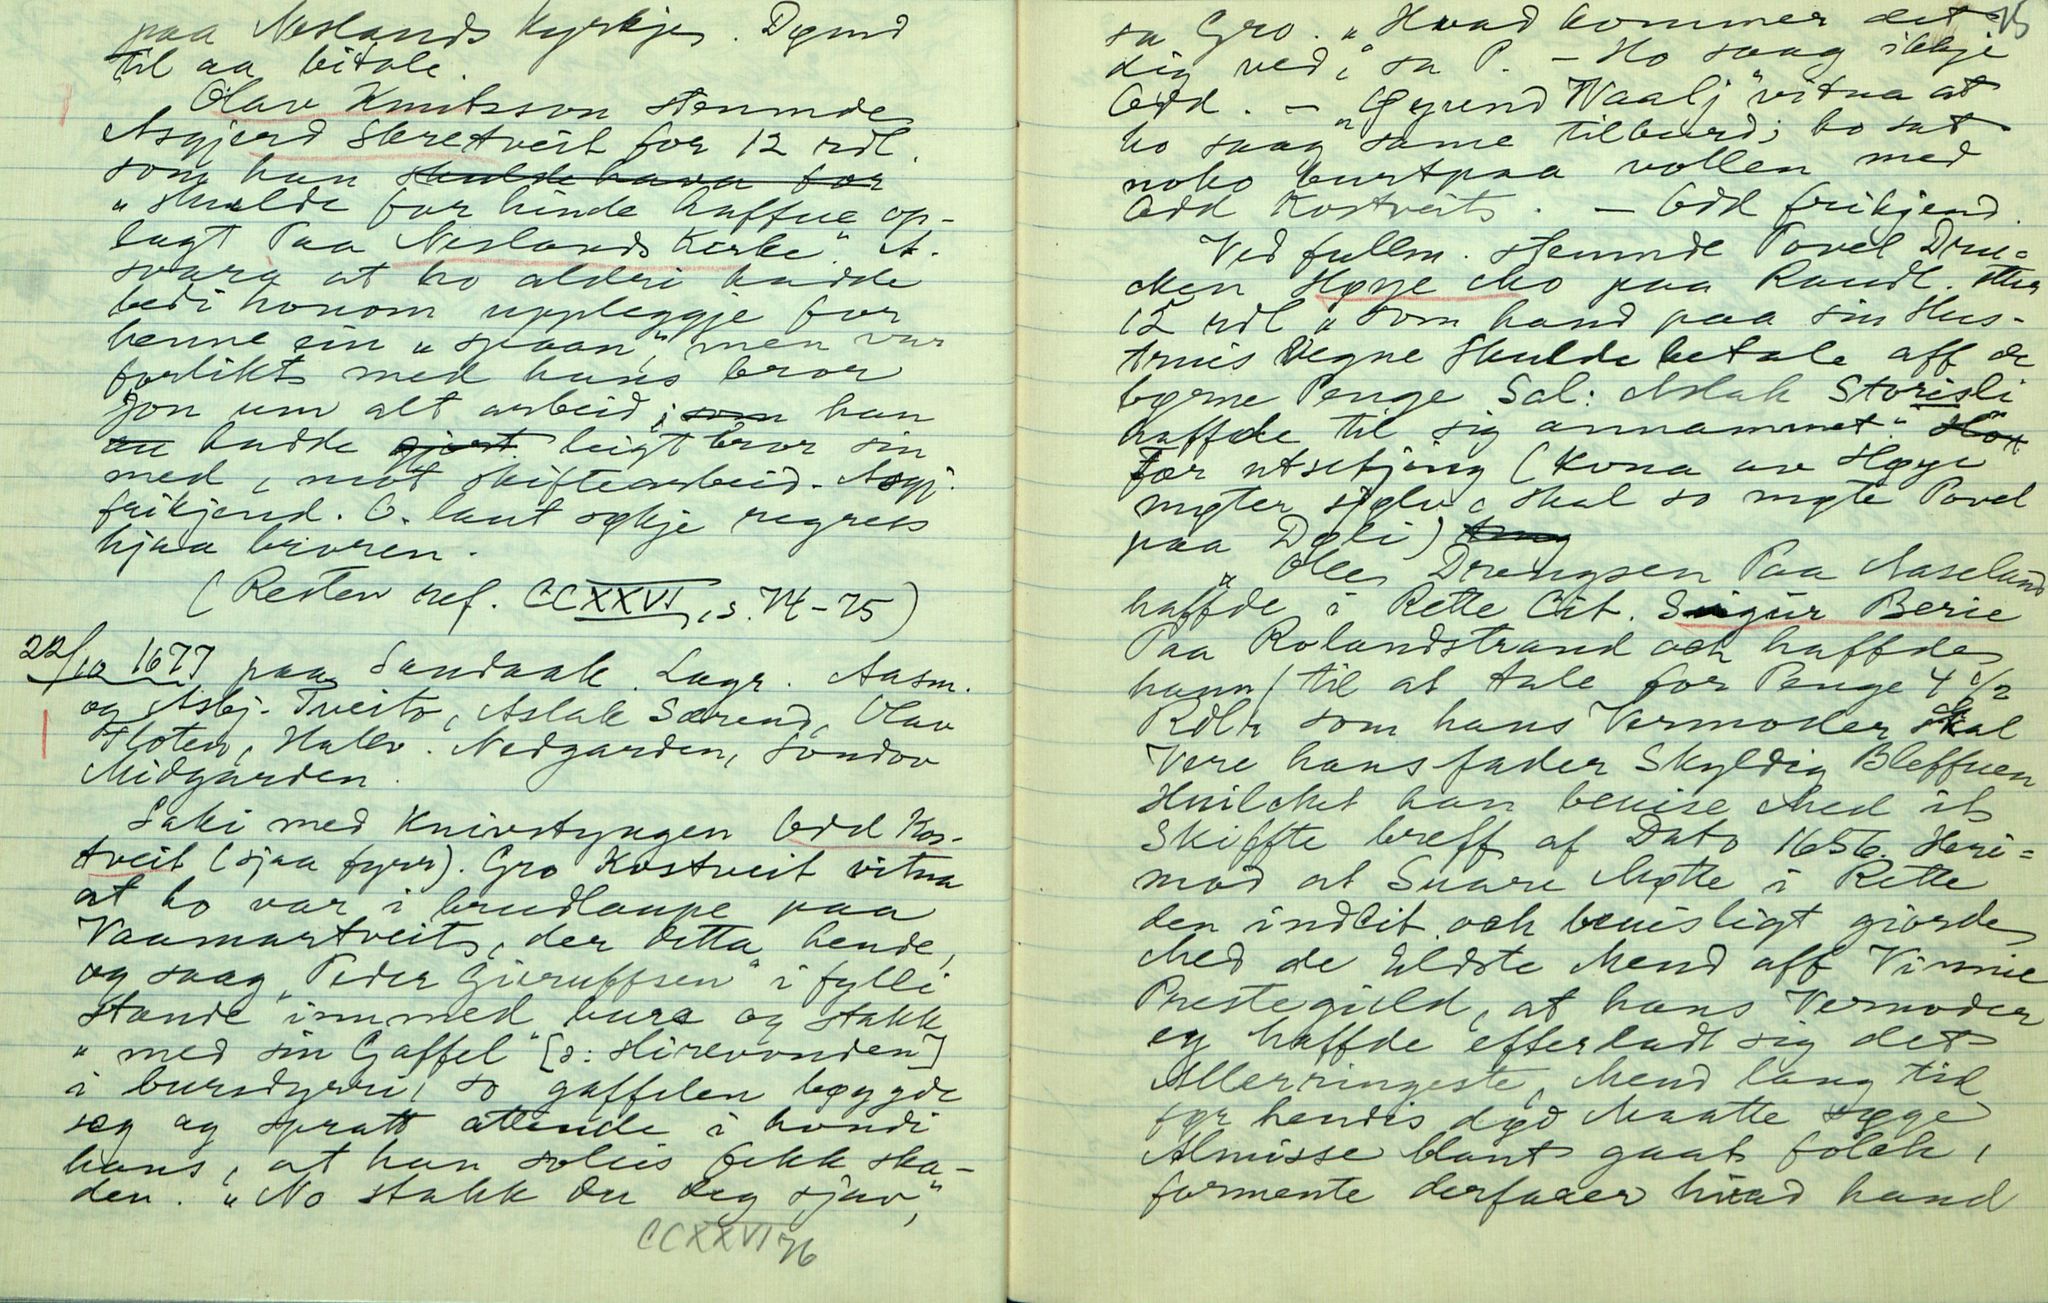 paa Neslands kyrkje. Dømd
til aa bitale.
Olav Knutsson stemnde
Asgjerd Skretveit for 12 rdl.
som han skulde hava for
"skulde for hinde haffue op-
lagt Paa Neslands Kirke". A.
svara at ho aldri hadde
bedi honom uppleggje for
henne ein "spaan", men var
forlikt med hans bror
Jon um alt arbeid; som han
hadde gjort leigt bror sin
med, mot skiftearbeid. Asgj.
frikjend. O. laut søkje regress
hjaa broren.
(Resten ref. CCXXVI, s. 74-75)
22/10 1677 paa Sandaak. Lagr. Aasm.
og Asbj. Tveito, Aslak Særend, Olav
Floten, Hallv. Nedgarden, Sondov
Midgarden.
Saki med Knivstyngen Odd Kos-
tveit (sjaa fyrr). Gro Kostveit vitna
at ho var i brudlaupe paa
Vaamartveit, der detta hende,
og saag "Peder Giøruffsen" i fylli
stande innmed bura og stakk
"med sin Gaffel" [ɔ: Hirevonden]
i bursdyrri, so gaffelen bøygde
seg og spratt attende i hondi
hans, at han soleis fekk ska-
den. "No stakk du deg sjøv,"
CCXXVI 76
75
sa Gro. "Hvad kommer det
dig ved", sa P. - Ho saag ikkje
Odd. - "Gyrend Waalj" vitna at
ho saag same tilburd; ho sat
noko burtpaa vollen med
Odd Kostveit. - Odd frikjend.
Ved fullm. stemnde Povel Dru-
cken Høye Mo paa Raudl.
12 rdl "som hand paa sin Hus-
truis Vegne skulde betale aff de
børne Penge Sal: Aslak Storisli
haffde til sig annammet."
For utsetjing (Kona av Høye
møter sjølv, skal so møte Povel
paa Døli)
"Olle Drengsen Paa Aaseland
haffde i Rette Cit. Sigur Berie
Paa Rolandstrand och haffde
hann til at tale for Penge 4 1/2
Rdlr som hans Vermoder skal
Vere hans fader Skyldig Bleffuen
Huilcket han beuise Med it
Skiffte breff af Dato 1656. Heri=
mod at Suare Møtte i Rette
den indCit. och beuisligt giorde
Med de Eldste Mend aff Vinnie
Prestegield, at hans Vermoder
ey haffde efterladt sig det
Allerringeste, Mend lang tid
før hendis død Maatte søge
Almisse blant gaat folck,
formente derfaaer hvad hand